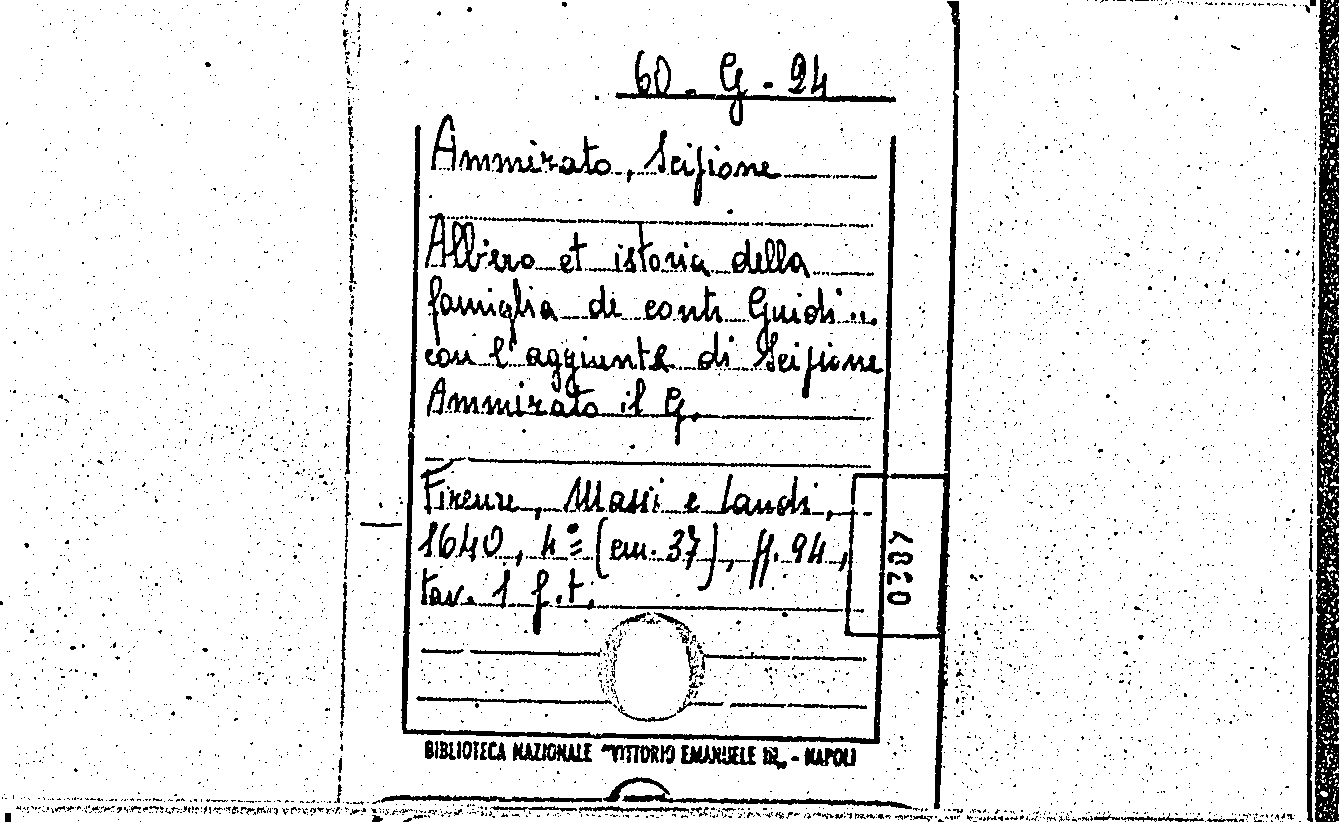 60 - G - 24
Ammirato, Scipione
Albero et istoria della
famiglia de conti Guidi ...
con l'aggiunte di Scipione
Ammirato il G.
Firenze, Massi e Landi,
1640, 4º (cm. 37), ff. 94,
tav. 1 f.t.
0287
BIBLIOTECA NAZIONALE "VITTORIO EMANUELE III" - NAPOLI